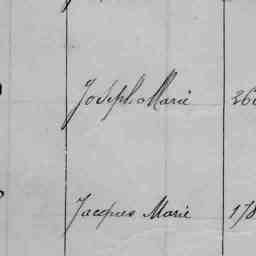 Joseph Marie
Jacques Marie